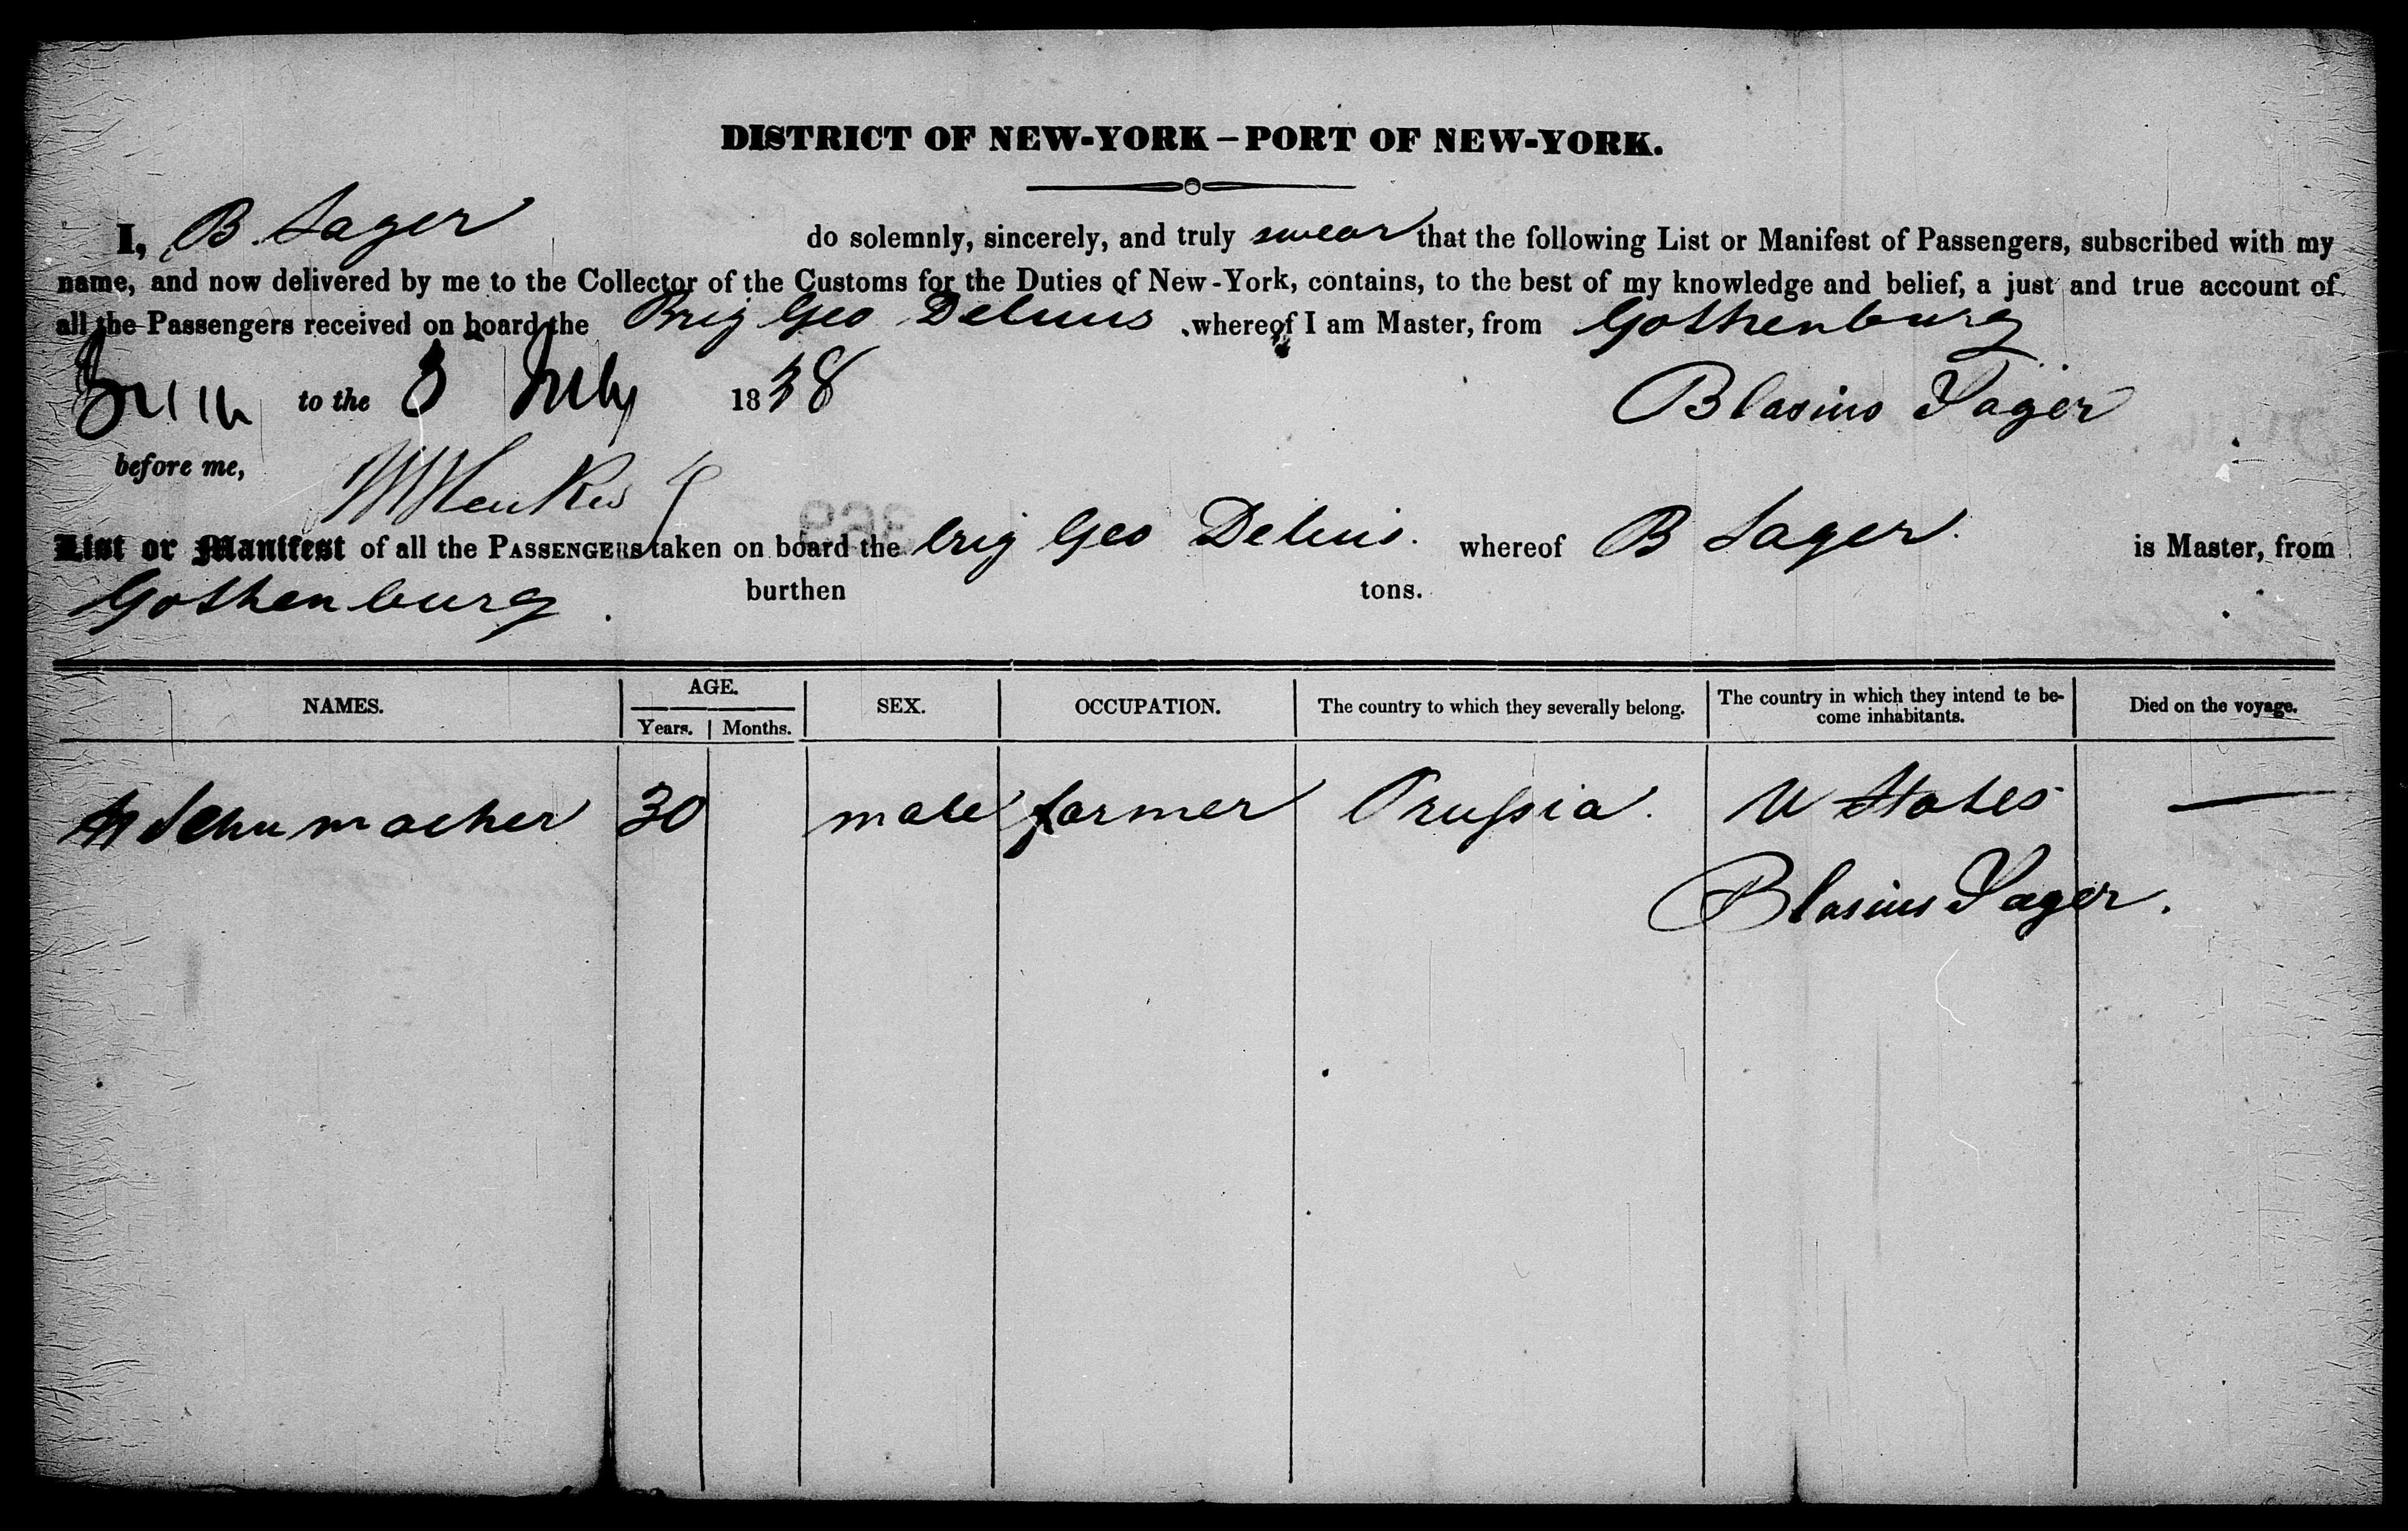 DISTRICT OF NEW-YORK – PORT OF NEW-YORK.
I, B. Sager do solemnly, sincerely, and truly swear that the following List or Manifest of Passengers, subscribed with my
name, and now delivered by me to the Collector of the Customs for the Duties of New-York, contains, to the best of my knowledge and belief, a just and true account of
all the Passengers received on board the Brig Geo Delius whereof I am Master, from Gothenburg
to the 3 July 1838 Blasius Jager
before me,
List or Manifest of all the PASSENGERS taken on board the brig Geo Delius. whereof B Sager. is Master, from
Gothenburg. burthen tons.
NAMES. AGE. SEX. OCCUPATION. The country to which they severally belong. The country in which they intend te be-
come inhabitants. Died on the voyage.
Years. Months.
Schumacher 30 male farmer Prussia. U States —
Blasius Jager.